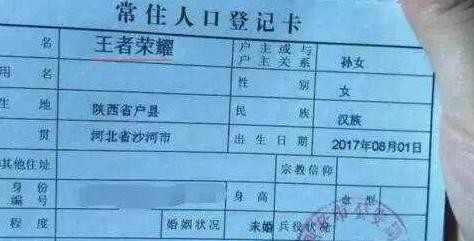 常住人口登记卡
名 王者荣耀 户主或与户主关系 孙女
用名 性别 女
生地 陕西省户县 民族 汉族
贯 河北省沙河市 出生日期 2017年08月01日
其他住址 宗教信仰
身份
编号 身高 血型
程度 婚姻状况 未婚 兵役状况